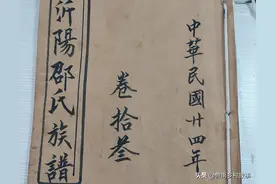 中華民國廿四年
卷拾叁
沂陽邵氏族譜